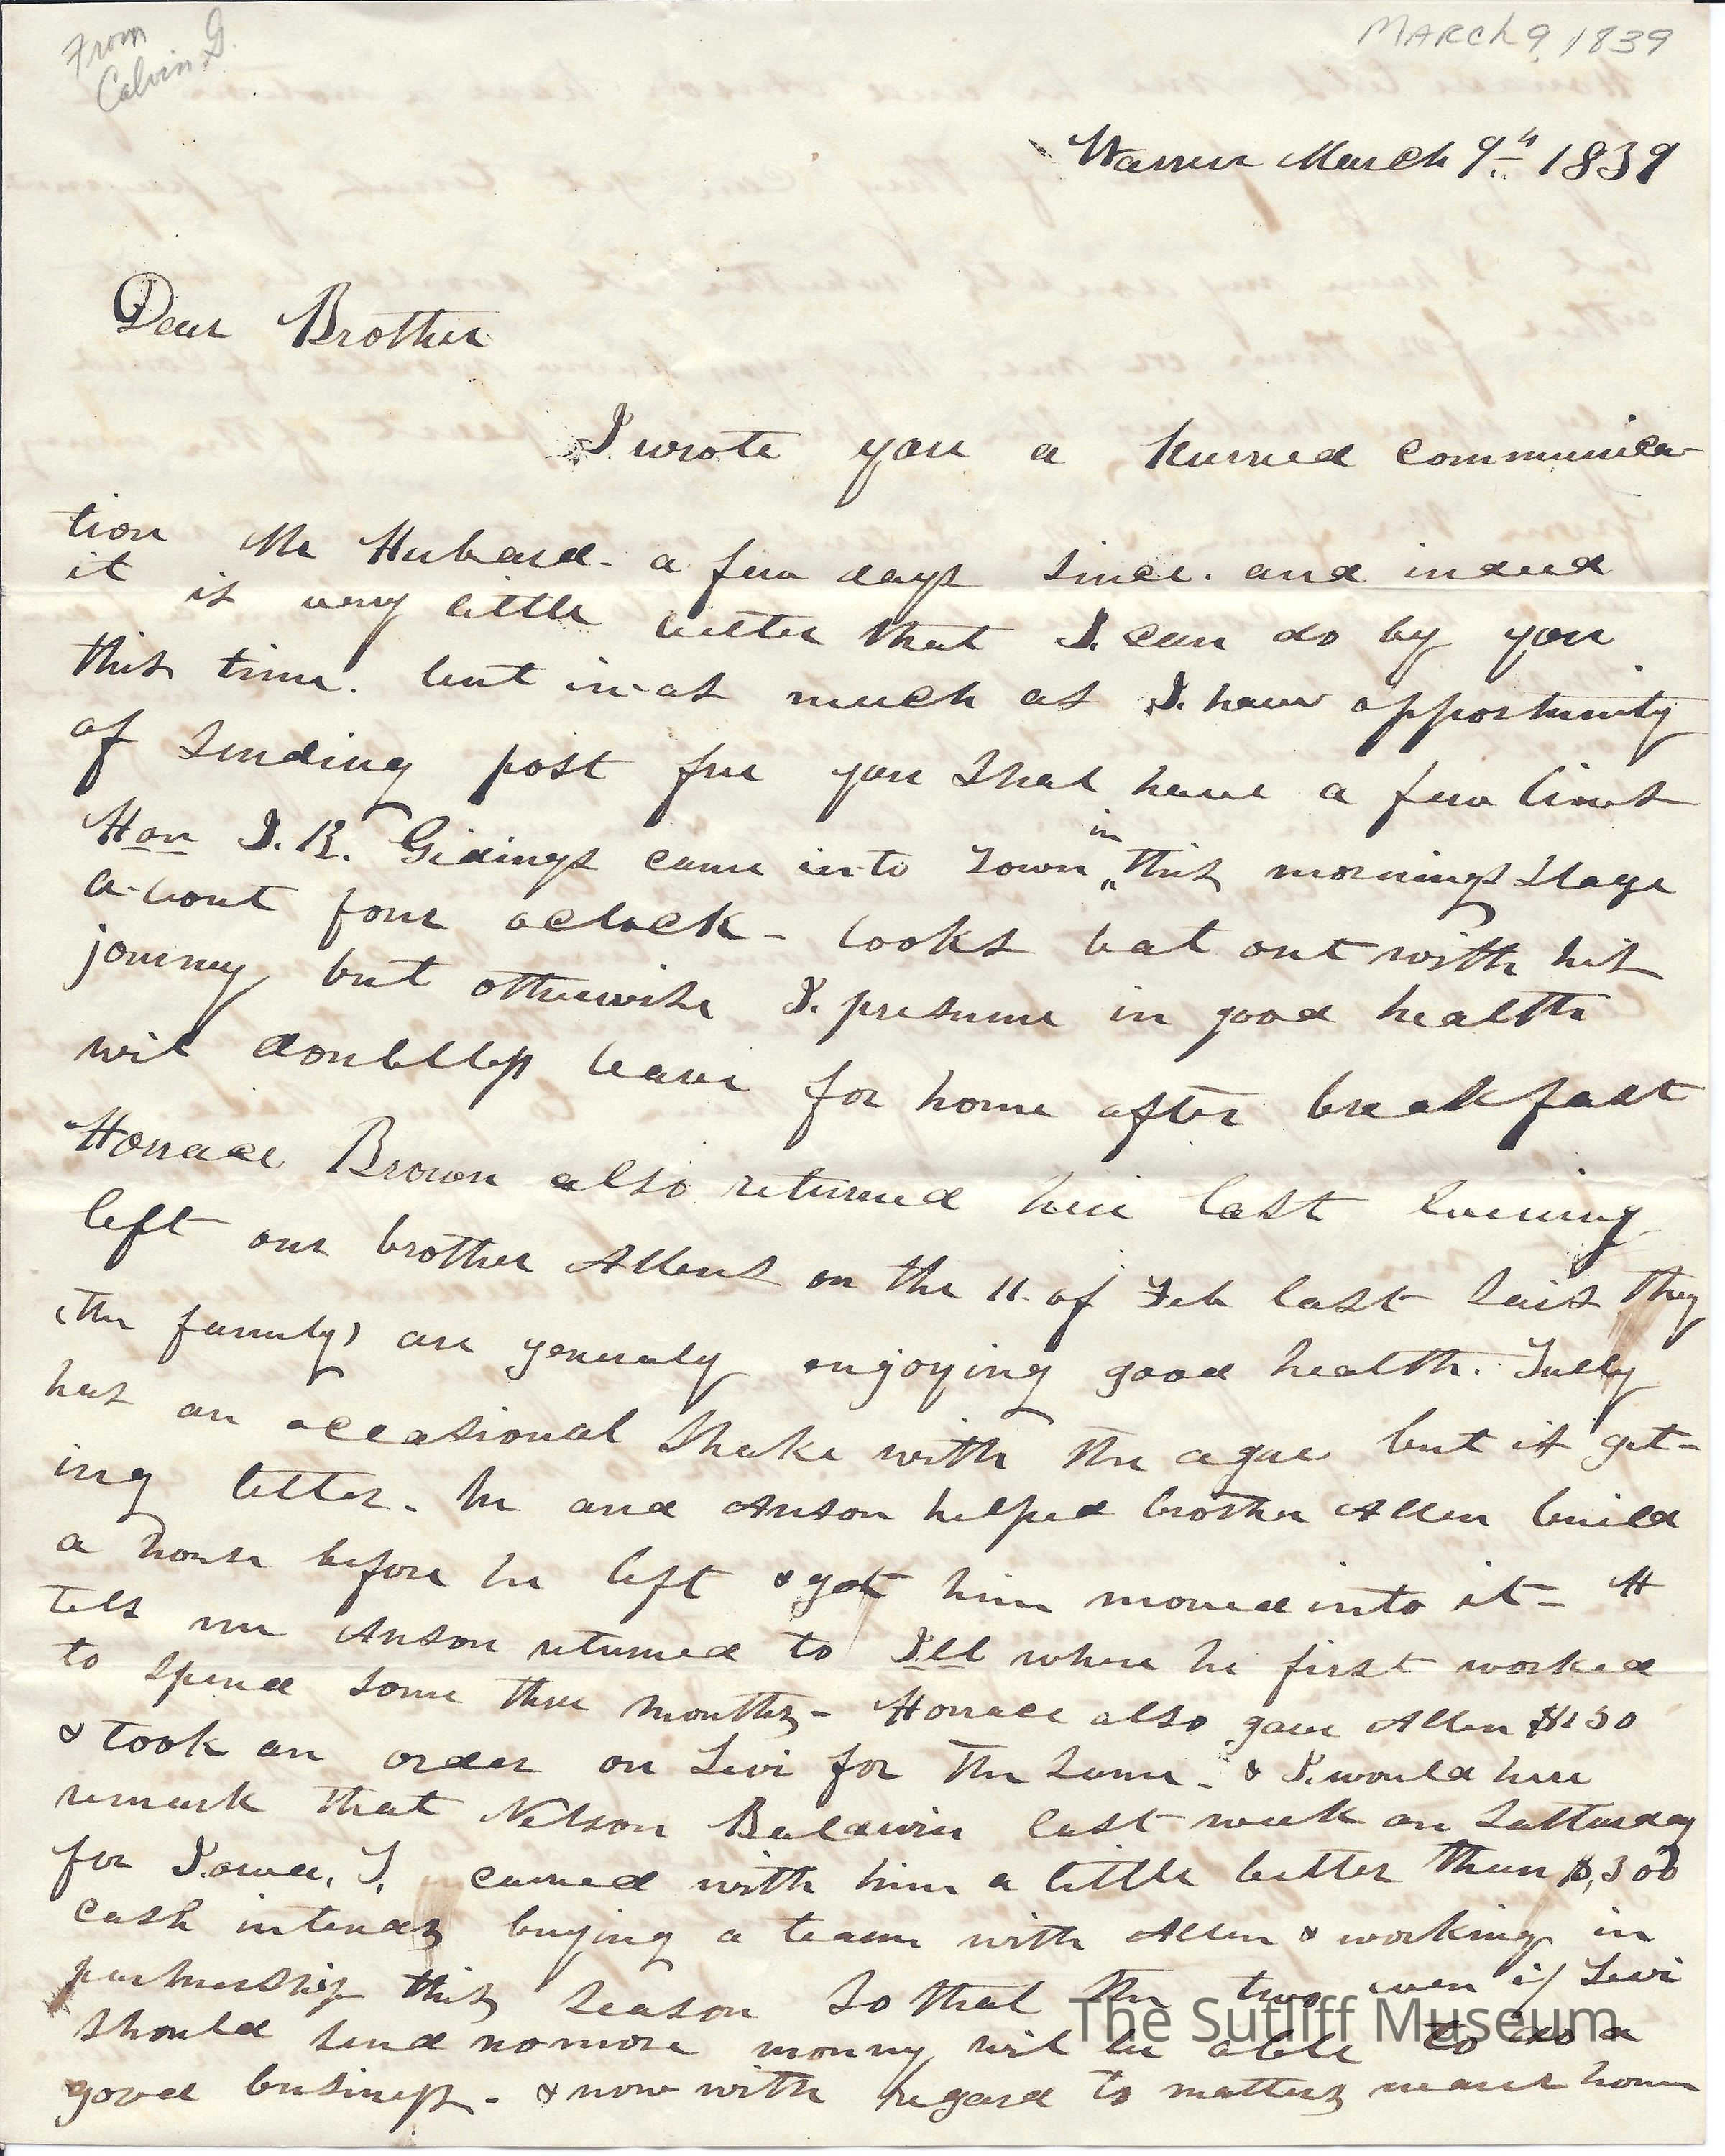 From
Calvin G.
MARCh 9, 1839
Warren March 9th 1839
Dear Brother
I wrote you a hurried communica-
tion Mr Hubard - a few days since. and indeed
it is very little better that I can do by you
this time. but in-as much as I have opportunity
of sending post free you shal have a few lines
Hon J. R. Gidings came in-to Town in this mornings Stage
a-bout four oclock - looks beat out with his
journey but otherwise I presume in good health
wil doubtless leave for home after breakfast
Horrace Brown also returned here last evening
left our brother Allens on the 11 of Feb last sais they
(the family) are generaly enjoying good health. Tully
has an occasional shake with the ague but is get-
ing better. he and Anson helped brother Allen build
a house before he left & got him moved into it - H
tels me Anson returned to Ill where he first worked
to spend some three months - Horrace also gave Allen $150
& took an order on Levi for the same - & I would here
remark that Nelson Baldwin last week on Satturday
for Iowa, T, carried with him a little better than $,300
cash intends buying a team with Allen & working in
partnership this season so that the two even if Levi
should send no more monny wil be able to do a
good business - & now with regard to matters nearer home
The Sutliff Museum